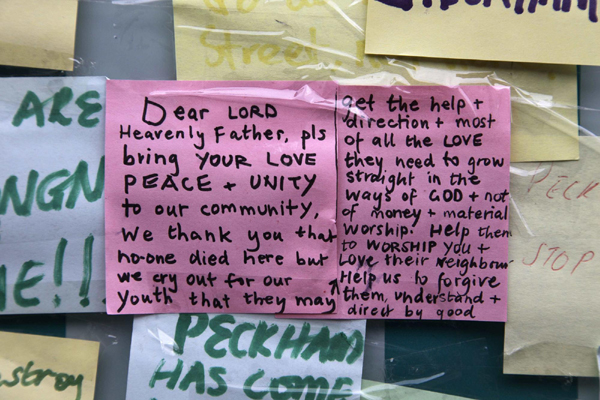 Street
ARE
NGN
E!!!
Dear LORD
Heavenly Father, pls
bring YOUR LOVE
PEACE + UNITY
to our community,
We thank you that
no-one died here but
we cry out for our
youth that they may
get the help +
direction + most
of all the LOVE
they need to grow
straight in the
ways of GOD + not
of money + material
worship. Help them
to WORSHIP you +
Love their Neighbour
Help us to forgive
them, understand +
direct by good
PECK
STOP
PECKHAM
HAS COME
stroy